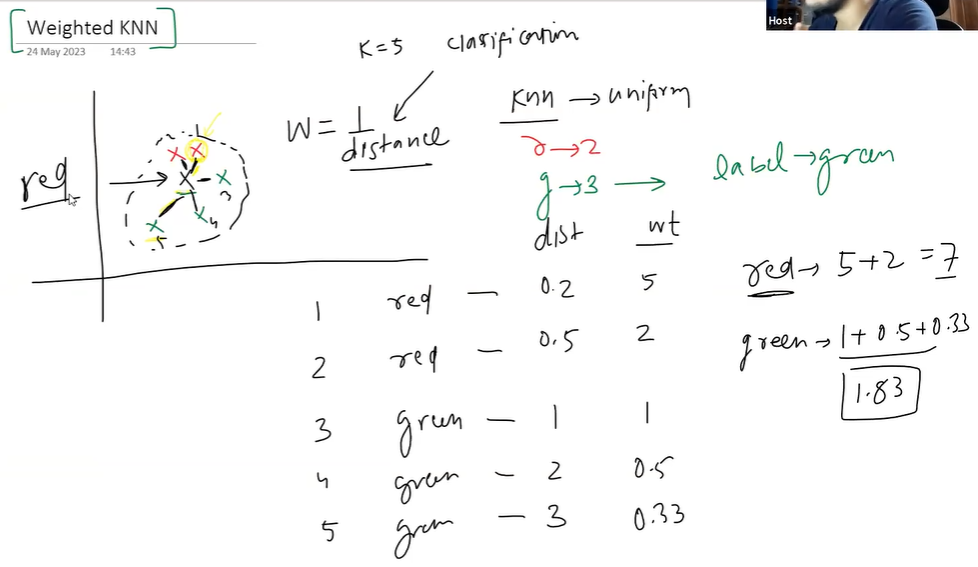 Weighted KNN
24 May 2023 14:43
Host
K=5 clasification
W = 1/distance
Knn → uniform
r → 2
g → 3 → label → green
red
1
3
4
5
dist wt
1 red — 0.2 5
2 red — 0.5 2
3 green — 1 1
4 green — 2 0.5
5 green — 3 0.33
red → 5+2 = 7
green → 1 + 0.5 + 0.33
1.83